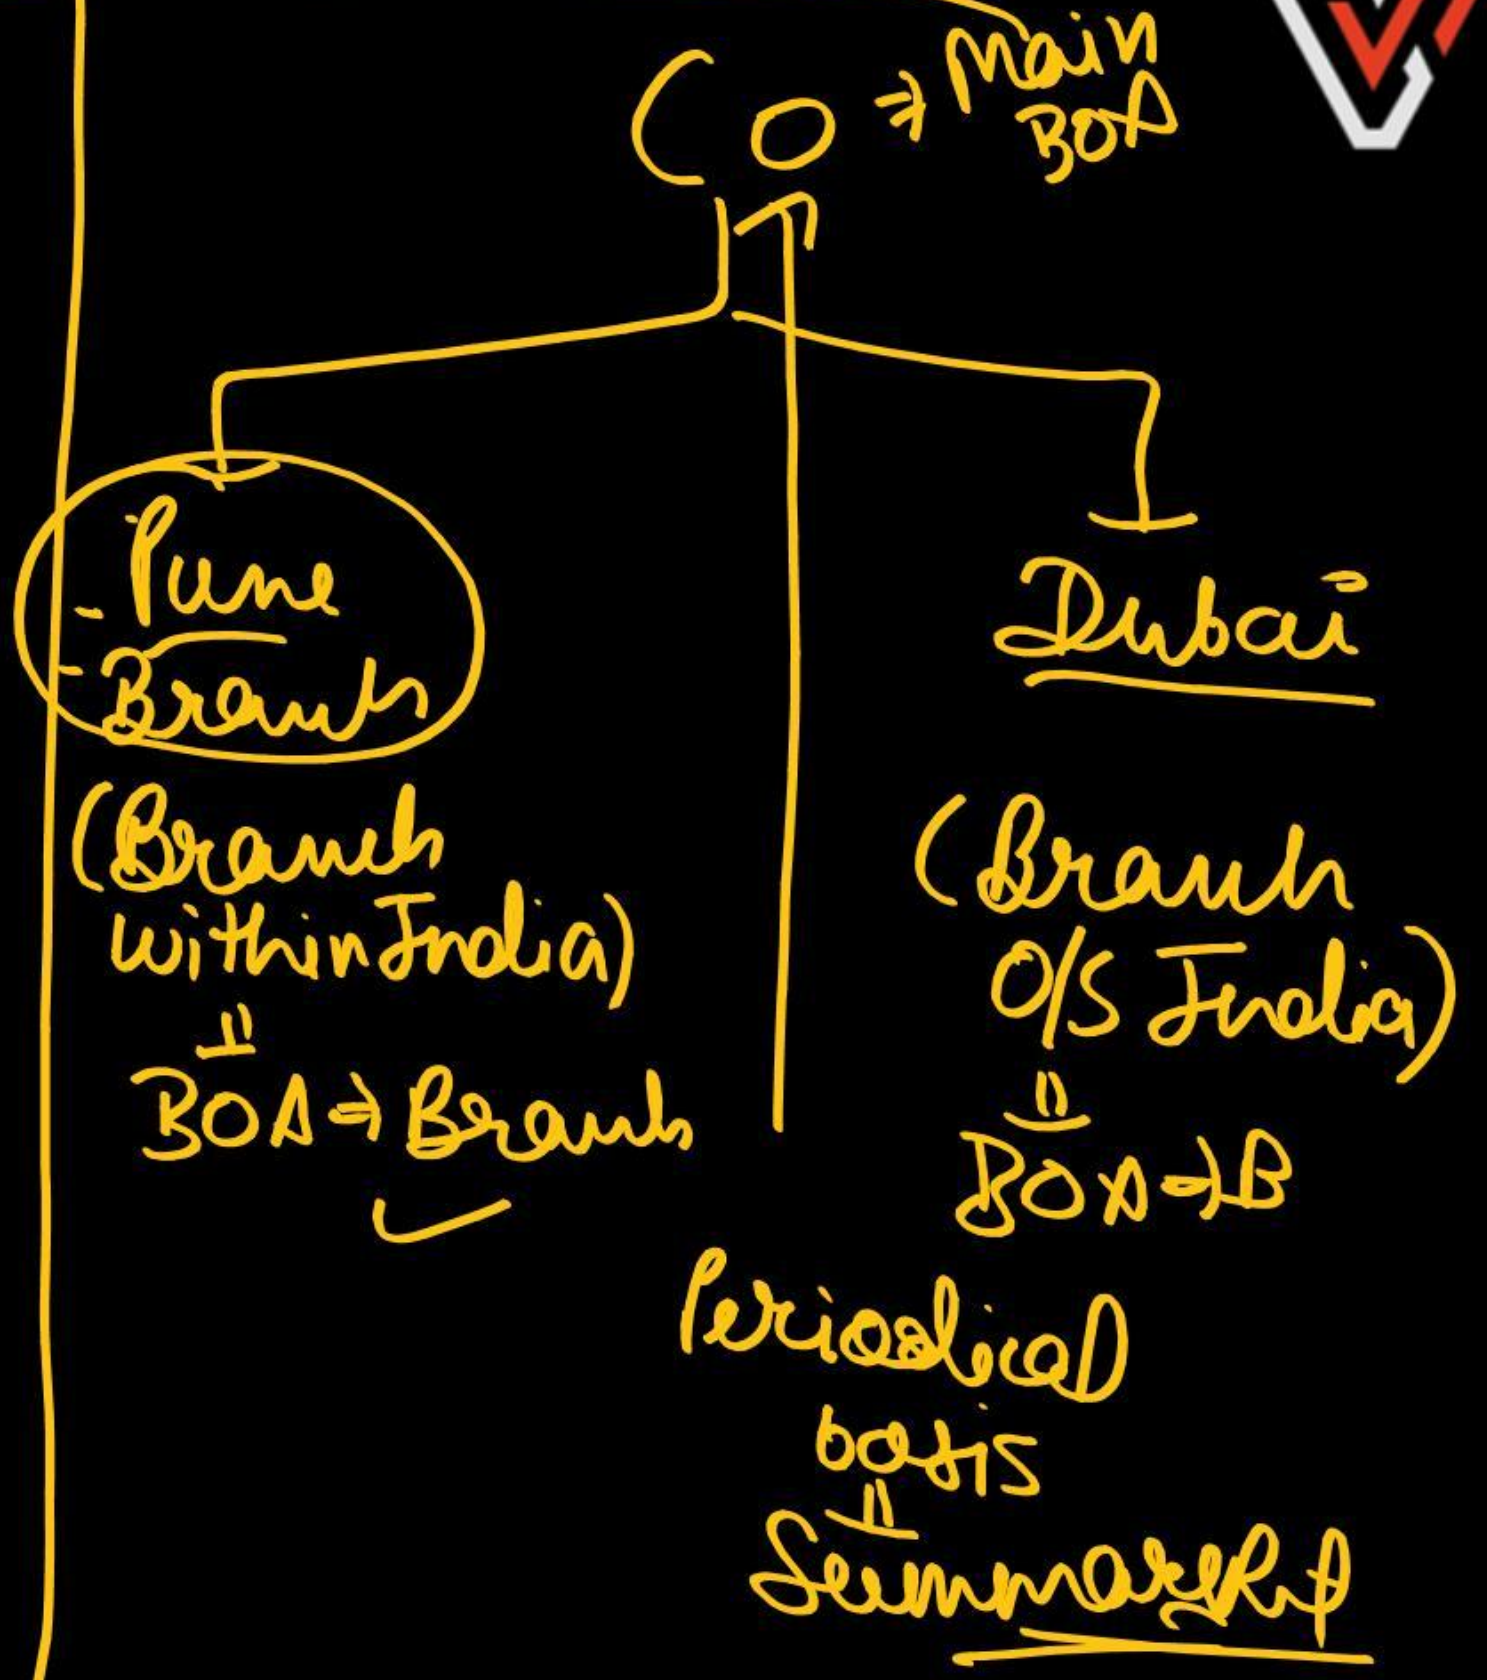 Co ⇒ Main
BOA
- Pune
- Branch
(Branch
within India)
BOA ⇒ Branch
Dubai
(Branch
O/S India)
BOA → B
Periodical
basis
Summary Rpt